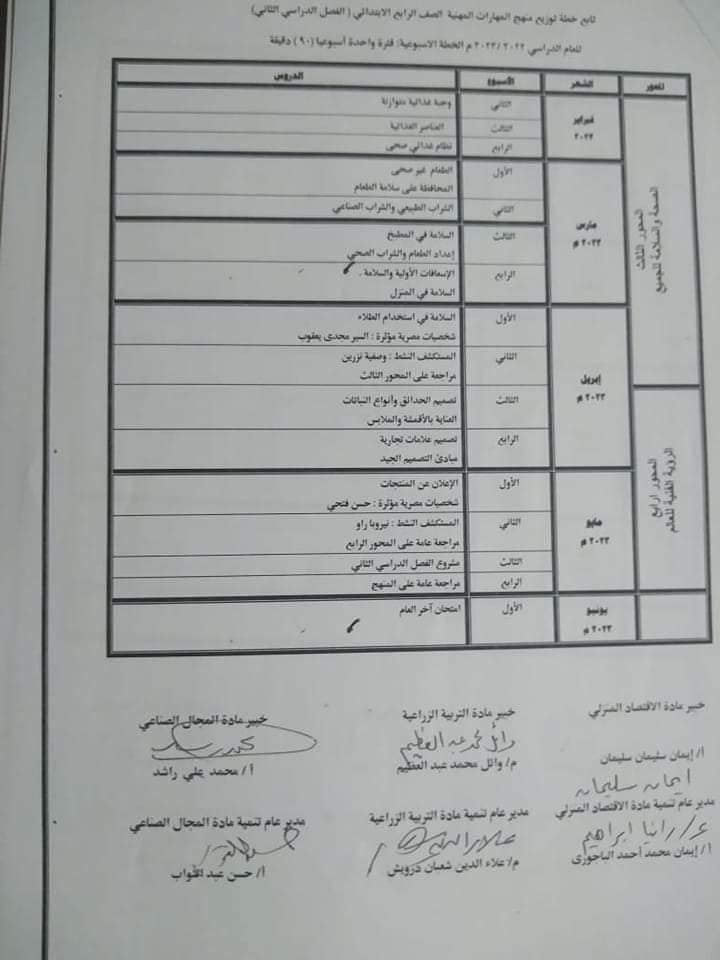 تابع خطة توزيع منهج المهارات المهنية الصف الرابع الابتدائي ( الفصل الدراسي الثاني)
للعام الدراسي ٢٠٢٢ / ٢٠٢٣ م الخطة الاسبوعية: فترة واحدة أسبوعيا (٩٠) دقيقة
المحور الشهر الأسبوع الدروس
المحور الثالث
الصحة والسلامة للجميع
فبراير
٢٠٢٣
الثاني وجبة غذائية متوازنة
الثالث العناصر الغذائية
الرابع نظام غذائي صحى
مارس
٢٠٢٣ م
الأول الطعام غير صحى
المحافظة على سلامة الطعام
الثاني الشراب الطبيعي والشراب الصناعي
الثالث السلامة في المطبخ
إعداد الطعام والشراب الصحى
الرابع الإسعافات الأولية والسلامة .
السلامة في المنزل
إبريل
٢٠٢٣ م
الأول السلامة في استخدام الطلاء
شخصيات مصرية مؤثرة : السير مجدى يعقوب
الثاني المستكشف النشط : وصفية نزرين
مراجعة على المحور الثالث
المحور الرابع
الرؤية الفنية للعالم
الثالث تصميم الحدائق وأنواع النباتات
العناية بالأقمشة والملابس
الرابع تصميم علامات تجارية
مبادئ التصميم الجيد
مايو
٢٠٢٣ م
الأول الإعلان عن المنتجات
شخصيات مصرية مؤثرة : حسن فتحي
الثاني المستكشف النشط : نيروبا راو
مراجعة عامة على المحور الرابع
الثالث مشروع الفصل الدراسي الثاني
الرابع مراجعة عامة على المنهج
يونيو
٢٠٢٣ م
الأول امتحان آخر العام
خبير مادة الاقتصاد المنزلي
أ/ إيمان سليمان سليمان
ايمان سليمان
خبير مادة التربية الزراعية
وائل محمد عبد العظيم
م/ وائل محمد عبد العظيم
خبير مادة المجال الصناعي
أ/ محمد علي راشد
مدير عام تنمية مادة الاقتصاد المنزلي
أ/ إيمان محمد أحمد الباجورى
مدير عام تنمية مادة التربية الزراعية
م/ علاء الدين شعبان درويش
مدير عام تنمية مادة المجال الصناعي
أ/ حسن عبد التواب